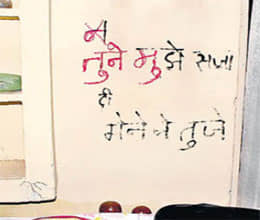 म
तुने मुझे सजा
दी
मेने वे तुजे